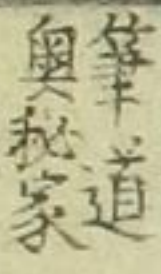 筆道
奧秘家